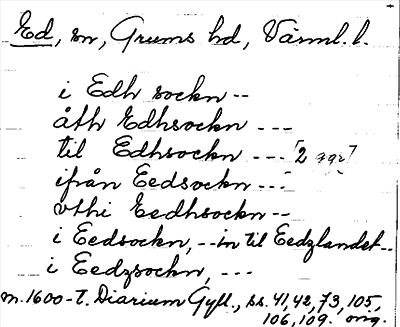 Ed, sn, Grums hd, Värml. l.
i Edh sockn --
åth Edhsockn ---
til Edhsockn --- [2 ggr]
ifrån Eedsockn ---
vthi Eedhsockn --
i Eedsockn, -- in til Eedzlandet --
i Eedzsockn, ---
m. 1600-t. Diarium Gyll., ss. 41, 42, 73, 105,
106, 109. orig.